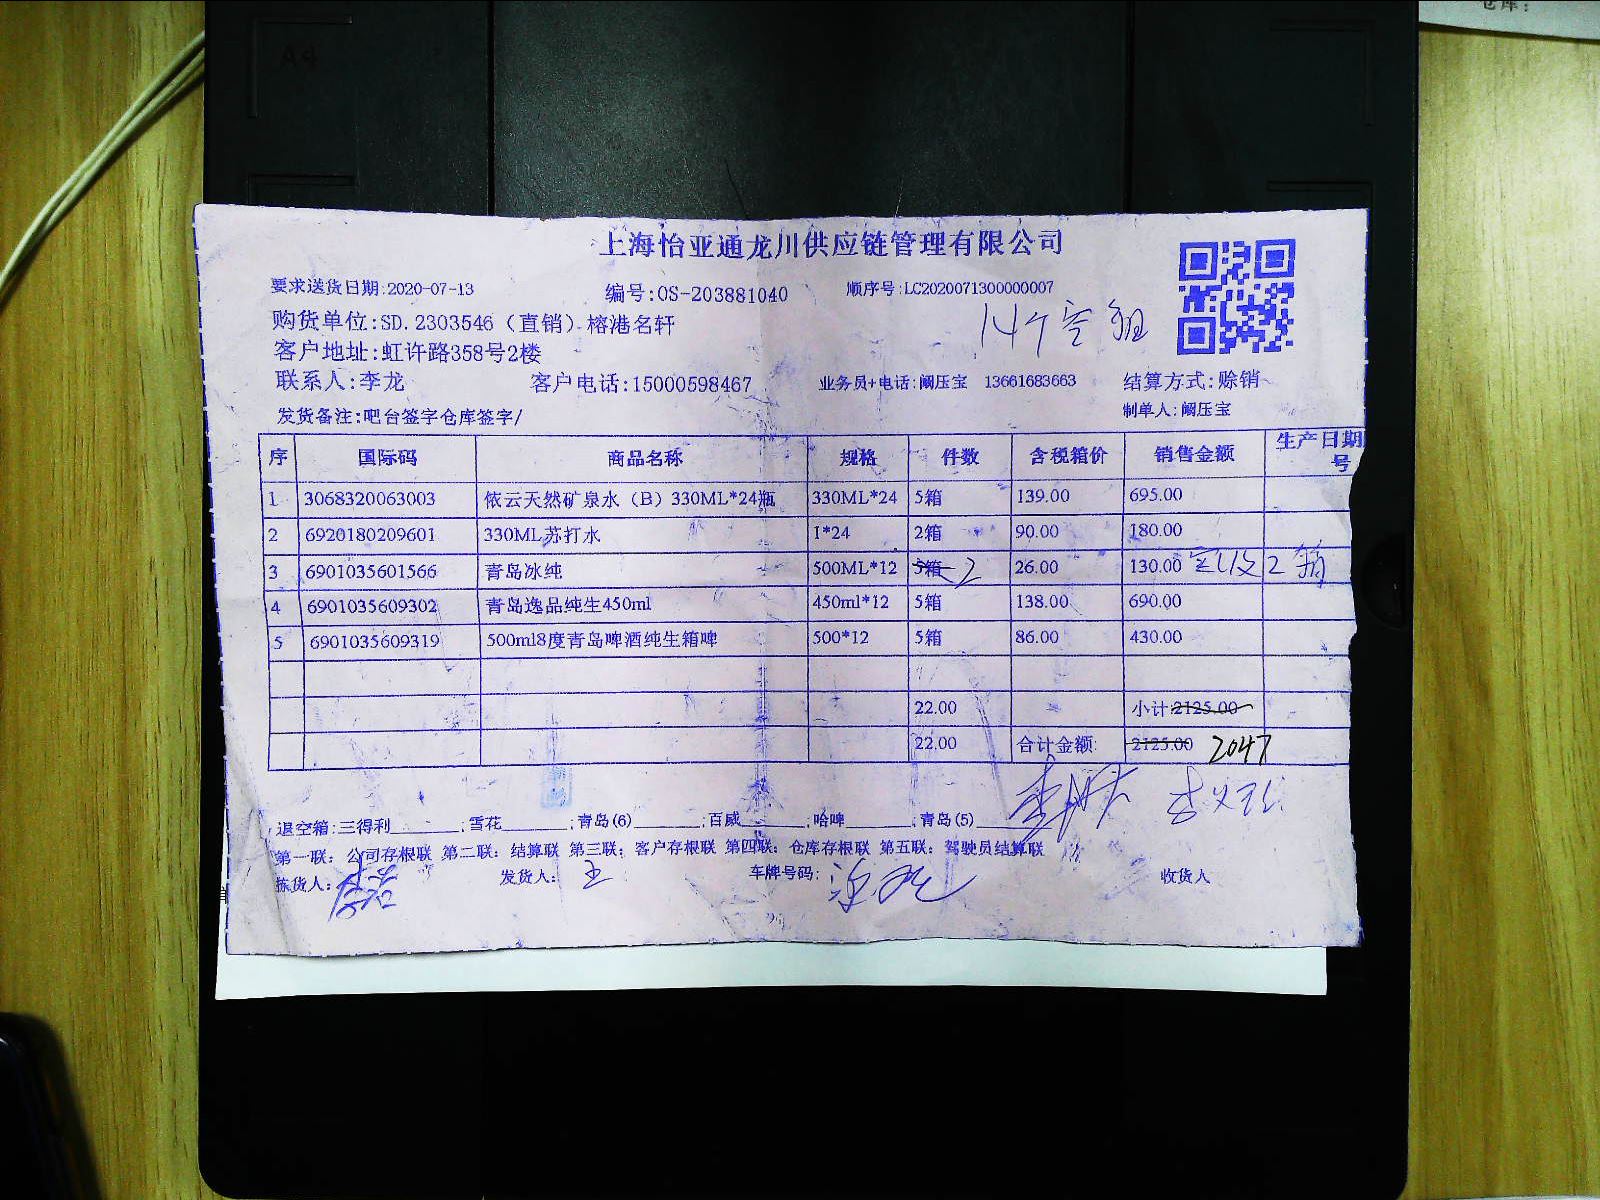 A4
仓库:
上海怡亚通龙川供应链管理有限公司
要求送货日期:2020-07-13 编号:OS-203881040 顺序号:LC2020071300000007
14个空箱
购货单位:SD.2303546（直销）-榕港名轩
客户地址:虹许路358号2楼
联系人:李龙 客户电话:15000598467 业务员+电话:阚压宝 13661683663 结算方式:赊销
发货备注:吧台签字仓库签字/ 制单人:阚压宝
序 国际码 商品名称 规格 件数 含税箱价 销售金额 生产日期
号
1 3068320063003 依云天然矿泉水（B）330ML*24瓶 330ML*24 5箱 139.00 695.00
2 6920180209601 330ML苏打水 1*24 2箱 90.00 180.00
3 6901035601566 青岛冰纯 500ML*12 5箱 2 26.00 130.00 实收2箱
4 6901035609302 青岛逸品纯生450ml 450ml*12 5箱 138.00 690.00
5 6901035609319 500ml8度青岛啤酒纯生箱啤 500*12 5箱 86.00 430.00
22.00 小计2125.00
22.00 合计金额: 2125.00 2047
退空箱:三得利______;雪花______;青岛(6)______;百威______;哈啤______;青岛(5)______
第一联: 公司存根联 第二联: 结算联 第三联: 客户存根联 第四联: 仓库存根联 第五联: 驾驶员结算联
拣货人: 发货人: 王 车牌号码: 收货人